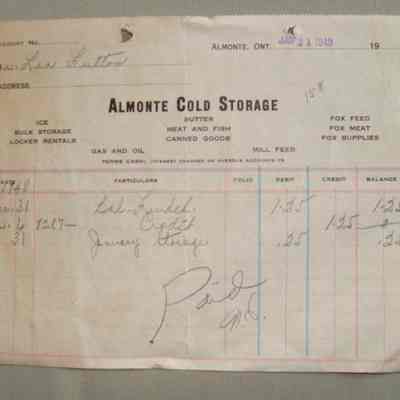 ACCOUNT No.
ALMONTE, ONT. JAN 31 1949 19
Lea Sutton
ADDRESS
ALMONTE COLD STORAGE
ICE BUTTER FOX FEED
BULK STORAGE MEAT AND FISH FOX MEAT
LOCKER RENTALS CANNED GOODS FOX SUPPLIES
GAS AND OIL MILL FEED
TERMS CASH; INTEREST CHARGED ON OVERDUE ACCOUNTS 7%
DATE PARTICULARS FOLIO DEBIT CREDIT BALANCE
31 Bal. 1.25 1.25
4 8267 Credit 1.25 0
31 January Storage .25 .25
Paid